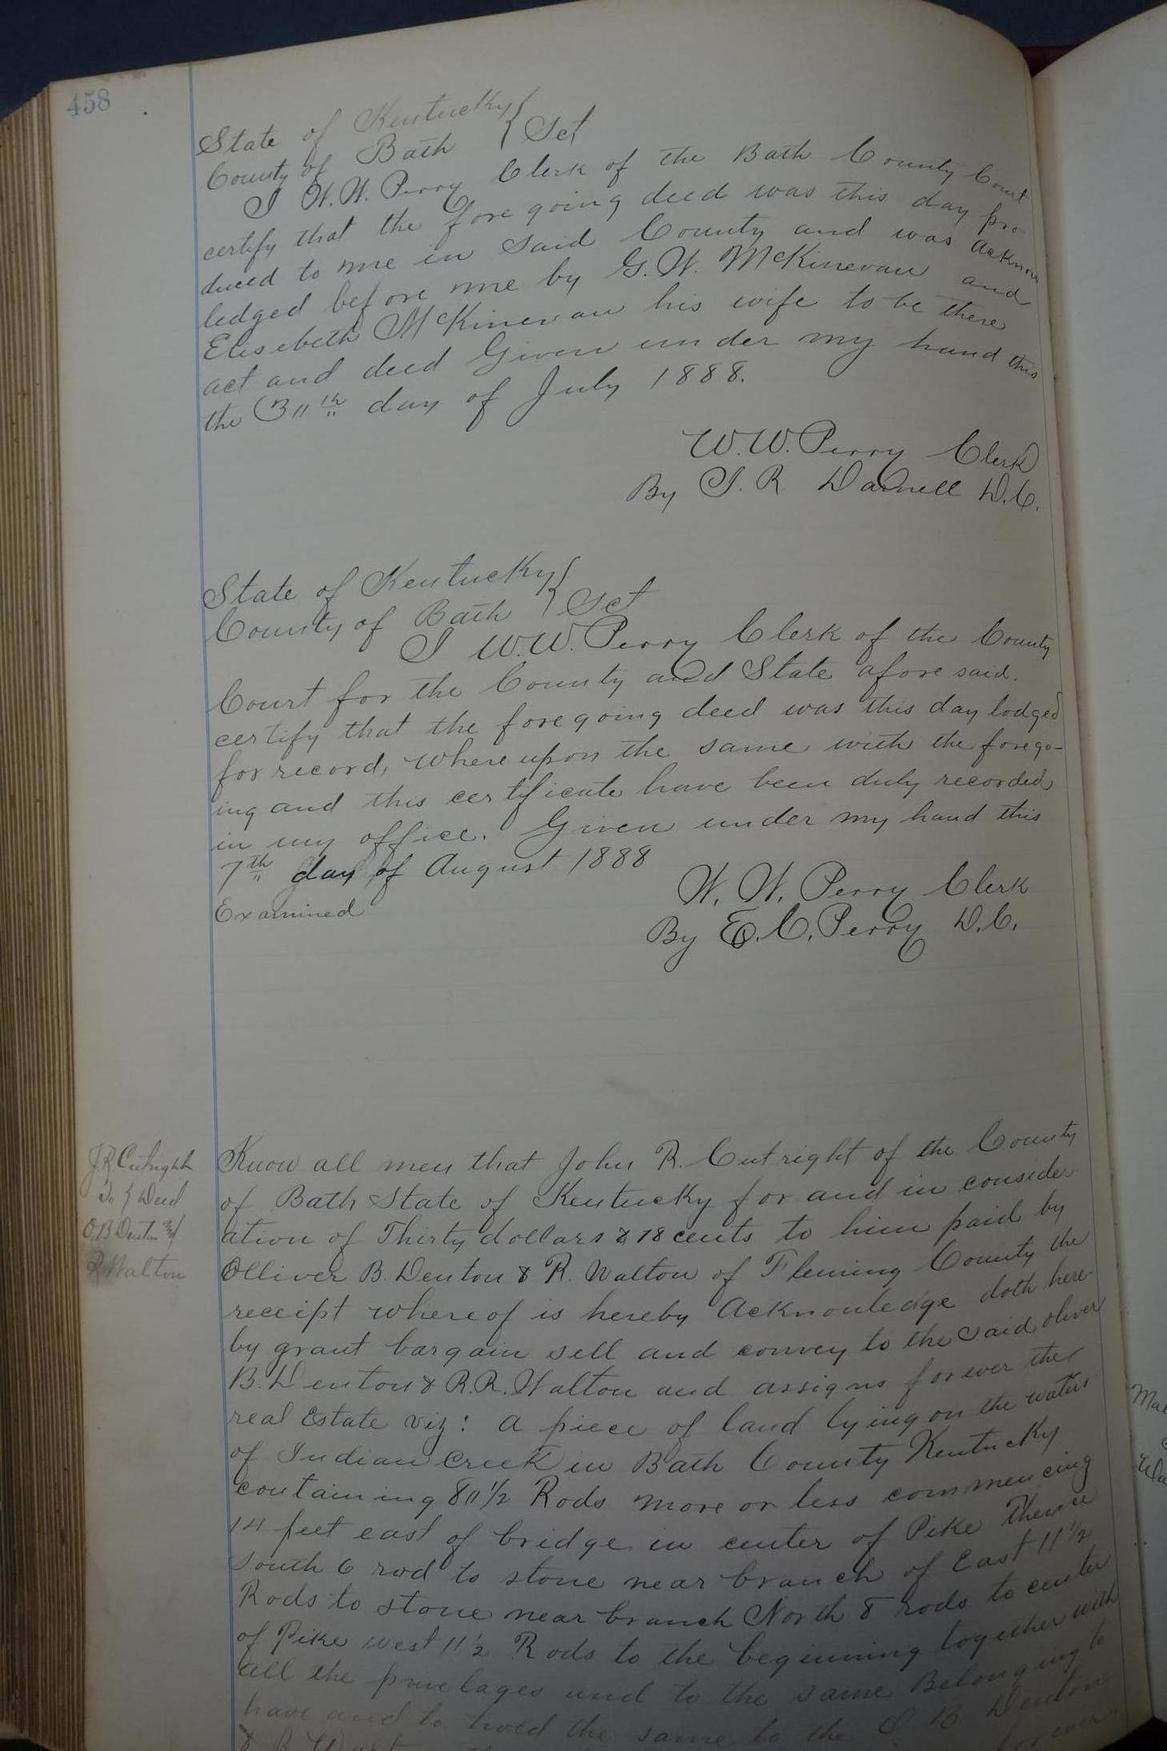 458
State of Kentucky
County of Bath } Sct
I W.W. Perry Clerk of the Bath County Court
certify that the fore going deed was this day pro-
duced to me in said County and was acknow
ledged before me by G. W. McKinevan and
Elisebeth McKinevan his wife to be there
act and deed Given under my hand this
the day of July 1888.
W. W. Perry Clerk
By R. Darnell D.C.
State of Kentucky
County of Bath } Sct
I W. W. Perry Clerk of the County
Court for the County and State afore said.
certify that the foregoing deed was this day lodged
for record, where upon the same with the forego-
ing and this certificate have been duly recorded
in my office. Given under my hand this
7th day of August 1888
W. W. Perry Clerk
Examined
By E. C. Perry D.C.
J.R Cutright
To } Deed
O.B Denton &
R Walton
Know all men that John R. Cutright of the County
of Bath State of Kentucky for and in consider-
ation of Thirty dollars & 18 cents to him paid by
Olliver B. Denton & R. Walton of Fleming County the
receipt where of is hereby acknowledge doth here-
by grant bargain sell and convey to the said oliver
B. Denton & R.R. Walton and assigns forever the
real Estate viz: a piece of land lying on the waters
of Indian Creek in Bath County Kentucky
containing Rods more or less commencing
14 feet east of bridge in center of Pike Thence
south 6 rod to stone near branch of East 11 1/2
Rods to stone near branch North 8 rods to center
of Pike west 11 1/2 Rods to the beginning together with
all the privelages and to the same Belonging to
have and to hold the same to the O B Denton
& R forever